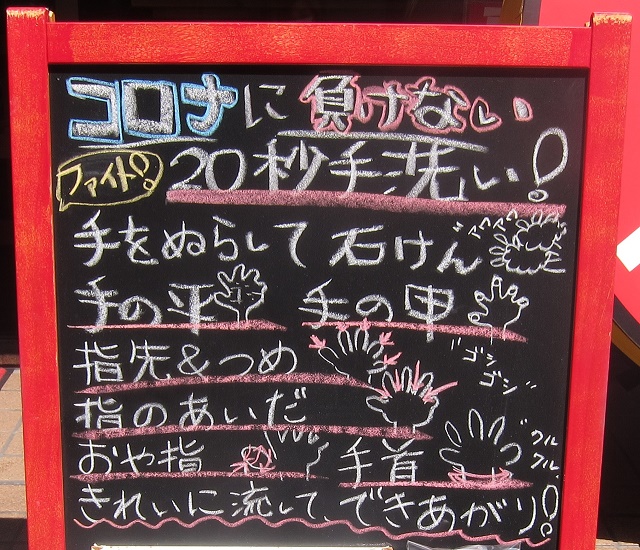 コロナに負けない
ファイト!! 20秒手洗い!
手をぬらして 石けん アワアワ
手の平 手の甲
指先&つめ "ゴシゴシ"
指のあいだ
おや指 手首 "クルクル"
きれいに流して、できあがり!!